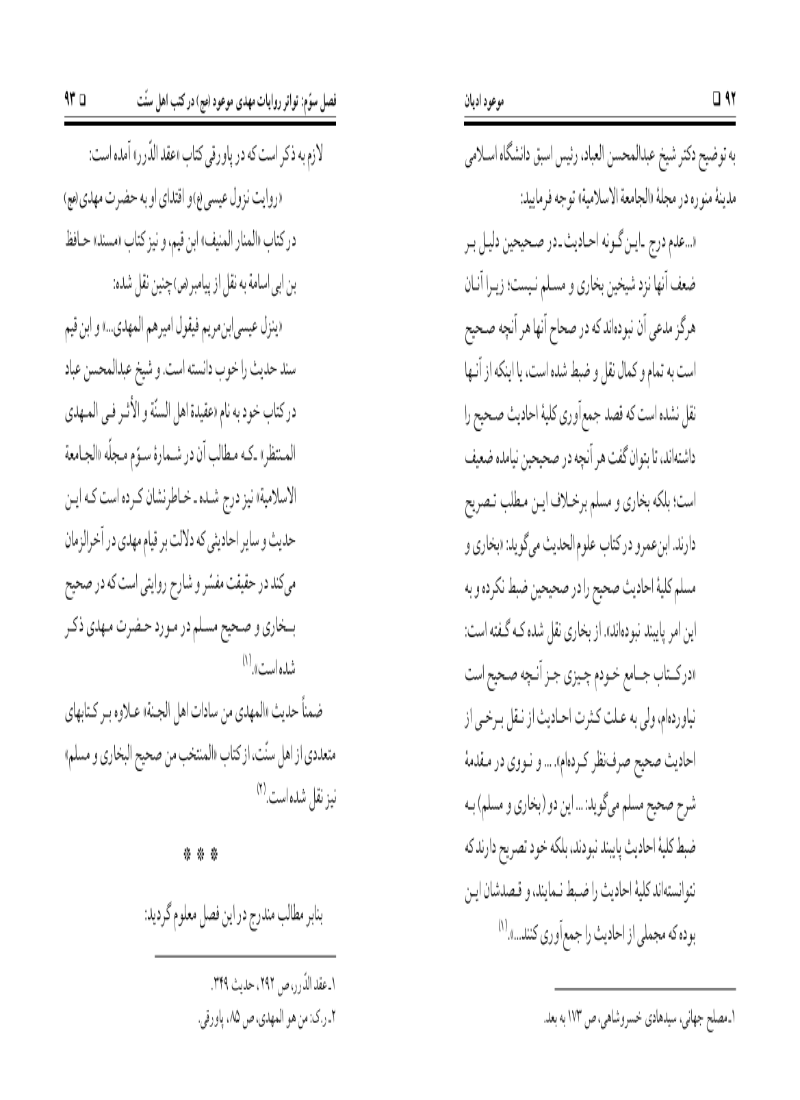 ۹۲ ❑ موعود ادیان
به توضیح دکتر شیخ عبدالمحسن العباد، رئیس اسبق دانشگاه اسلامی
مدینهٔ منوره در مجلهٔ «الجامعة الاسلامیة» توجه فرمایید:
«...عدم درج ـ این‌گونه احادیث ـ در صحیحین دلیل بر
ضعف آنها نزد شیخین بخاری و مسلم نیست؛ زیرا آنان
هرگز مدعی آن نبوده‌اند که در صحاح آنها هر آنچه صحیح
است به تمام و کمال نقل و ضبط شده است، یا اینکه از آنها
نقل نشده است که قصد جمع‌آوری کلیهٔ احادیث صحیح را
داشته‌اند، تا بتوان گفت هر آنچه در صحیحین نیامده ضعیف
است؛ بلکه بخاری و مسلم برخلاف این مطلب تصریح
دارند. ابن‌عمرو در کتاب علوم‌الحدیث می‌گوید: «بخاری و
مسلم کلیهٔ احادیث صحیح را در صحیحین ضبط نکرده و به
این امر پایبند نبوده‌اند». از بخاری نقل شده که گفته است:
«در کتاب جامع خودم چیزی جز آنچه صحیح است
نیاورده‌ام، ولی به علت کثرت احادیث از نقل برخی از
احادیث صحیح صرف‌نظر کرده‌ام». ... و نووی در مقدمهٔ
شرح صحیح مسلم می‌گوید: ... این دو (بخاری و مسلم) به
ضبط کلیهٔ احادیث پایبند نبودند، بلکه خود تصریح دارند که
نتوانسته‌اند کلیهٔ احادیث را ضبط نمایند، و قصدشان این
بوده که مجملی از احادیث را جمع‌آوری کنند...».(۱)
۱ـ مصلح جهانی، سیدهادی خسروشاهی، ص ۱۷۳ به بعد.
فصل سوّم: تواتر روایات مهدی موعود (عج) در کتب اهل سنّت ❑ ۹۳
لازم به ذکر است که در پاورقی کتاب «عقد الدّرر» آمده است:
«روایت نزول عیسی(ع) و اقتدای او به حضرت مهدی(عج)
در کتاب «المنار المنیف» ابن قیم، و نیز کتاب «مسند» حافظ
بن ابی اسامة به نقل از پیامبر(ص) چنین نقل شده:
«ینزل عیسی‌ابن‌مریم فیقول امیرهم المهدی...» و ابن قیم
سند حدیث را خوب دانسته است. و شیخ عبدالمحسن عباد
در کتاب خود به نام «عقیدة اهل السنّة و الأثر فی المهدی
المنتظر» ـ که مطالب آن در شمارهٔ سوّم مجلّه «الجامعة
الاسلامیة» نیز درج شده ـ خاطرنشان کرده است که این
حدیث و سایر احادیثی که دلالت بر قیام مهدی در آخرالزمان
می‌کند در حقیقت مفسّر و شارح روایتی است که در صحیح
بخاری و صحیح مسلم در مورد حضرت مهدی ذکر
شده است».(۱)
ضمناً حدیث «المهدی من سادات اهل الجنة» علاوه بر کتابهای
متعددی از اهل سنّت، از کتاب «المنتخب من صحیح البخاری و مسلم»
نیز نقل شده است.(۲)
* * *
بنابر مطالب مندرج در این فصل معلوم گردید:
۱ـ عقد الدّرر، ص ۲۹۲، حدیث ۳۴۹.
۲ـ ر.ک: من هو المهدی، ص ۸۵، پاورقی.